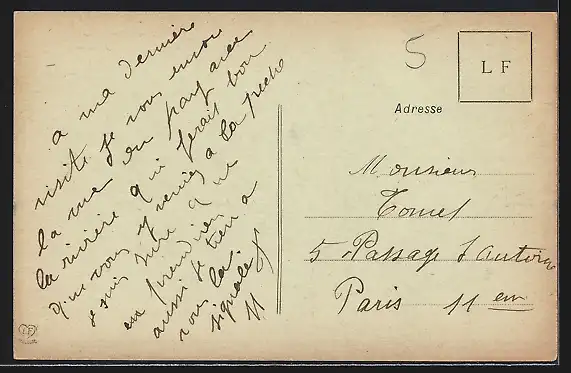 a ma dernière
visite je vous envoie
la vue du pays avec
la rivière qui serait bon
que vous y veniez a la peche
je suis sure que
en prendriez
aussi je tien a
vous la
signale
5
LF
Adresse
Monsieur
Tomel
5 Passage S
Paris 11 em
LF